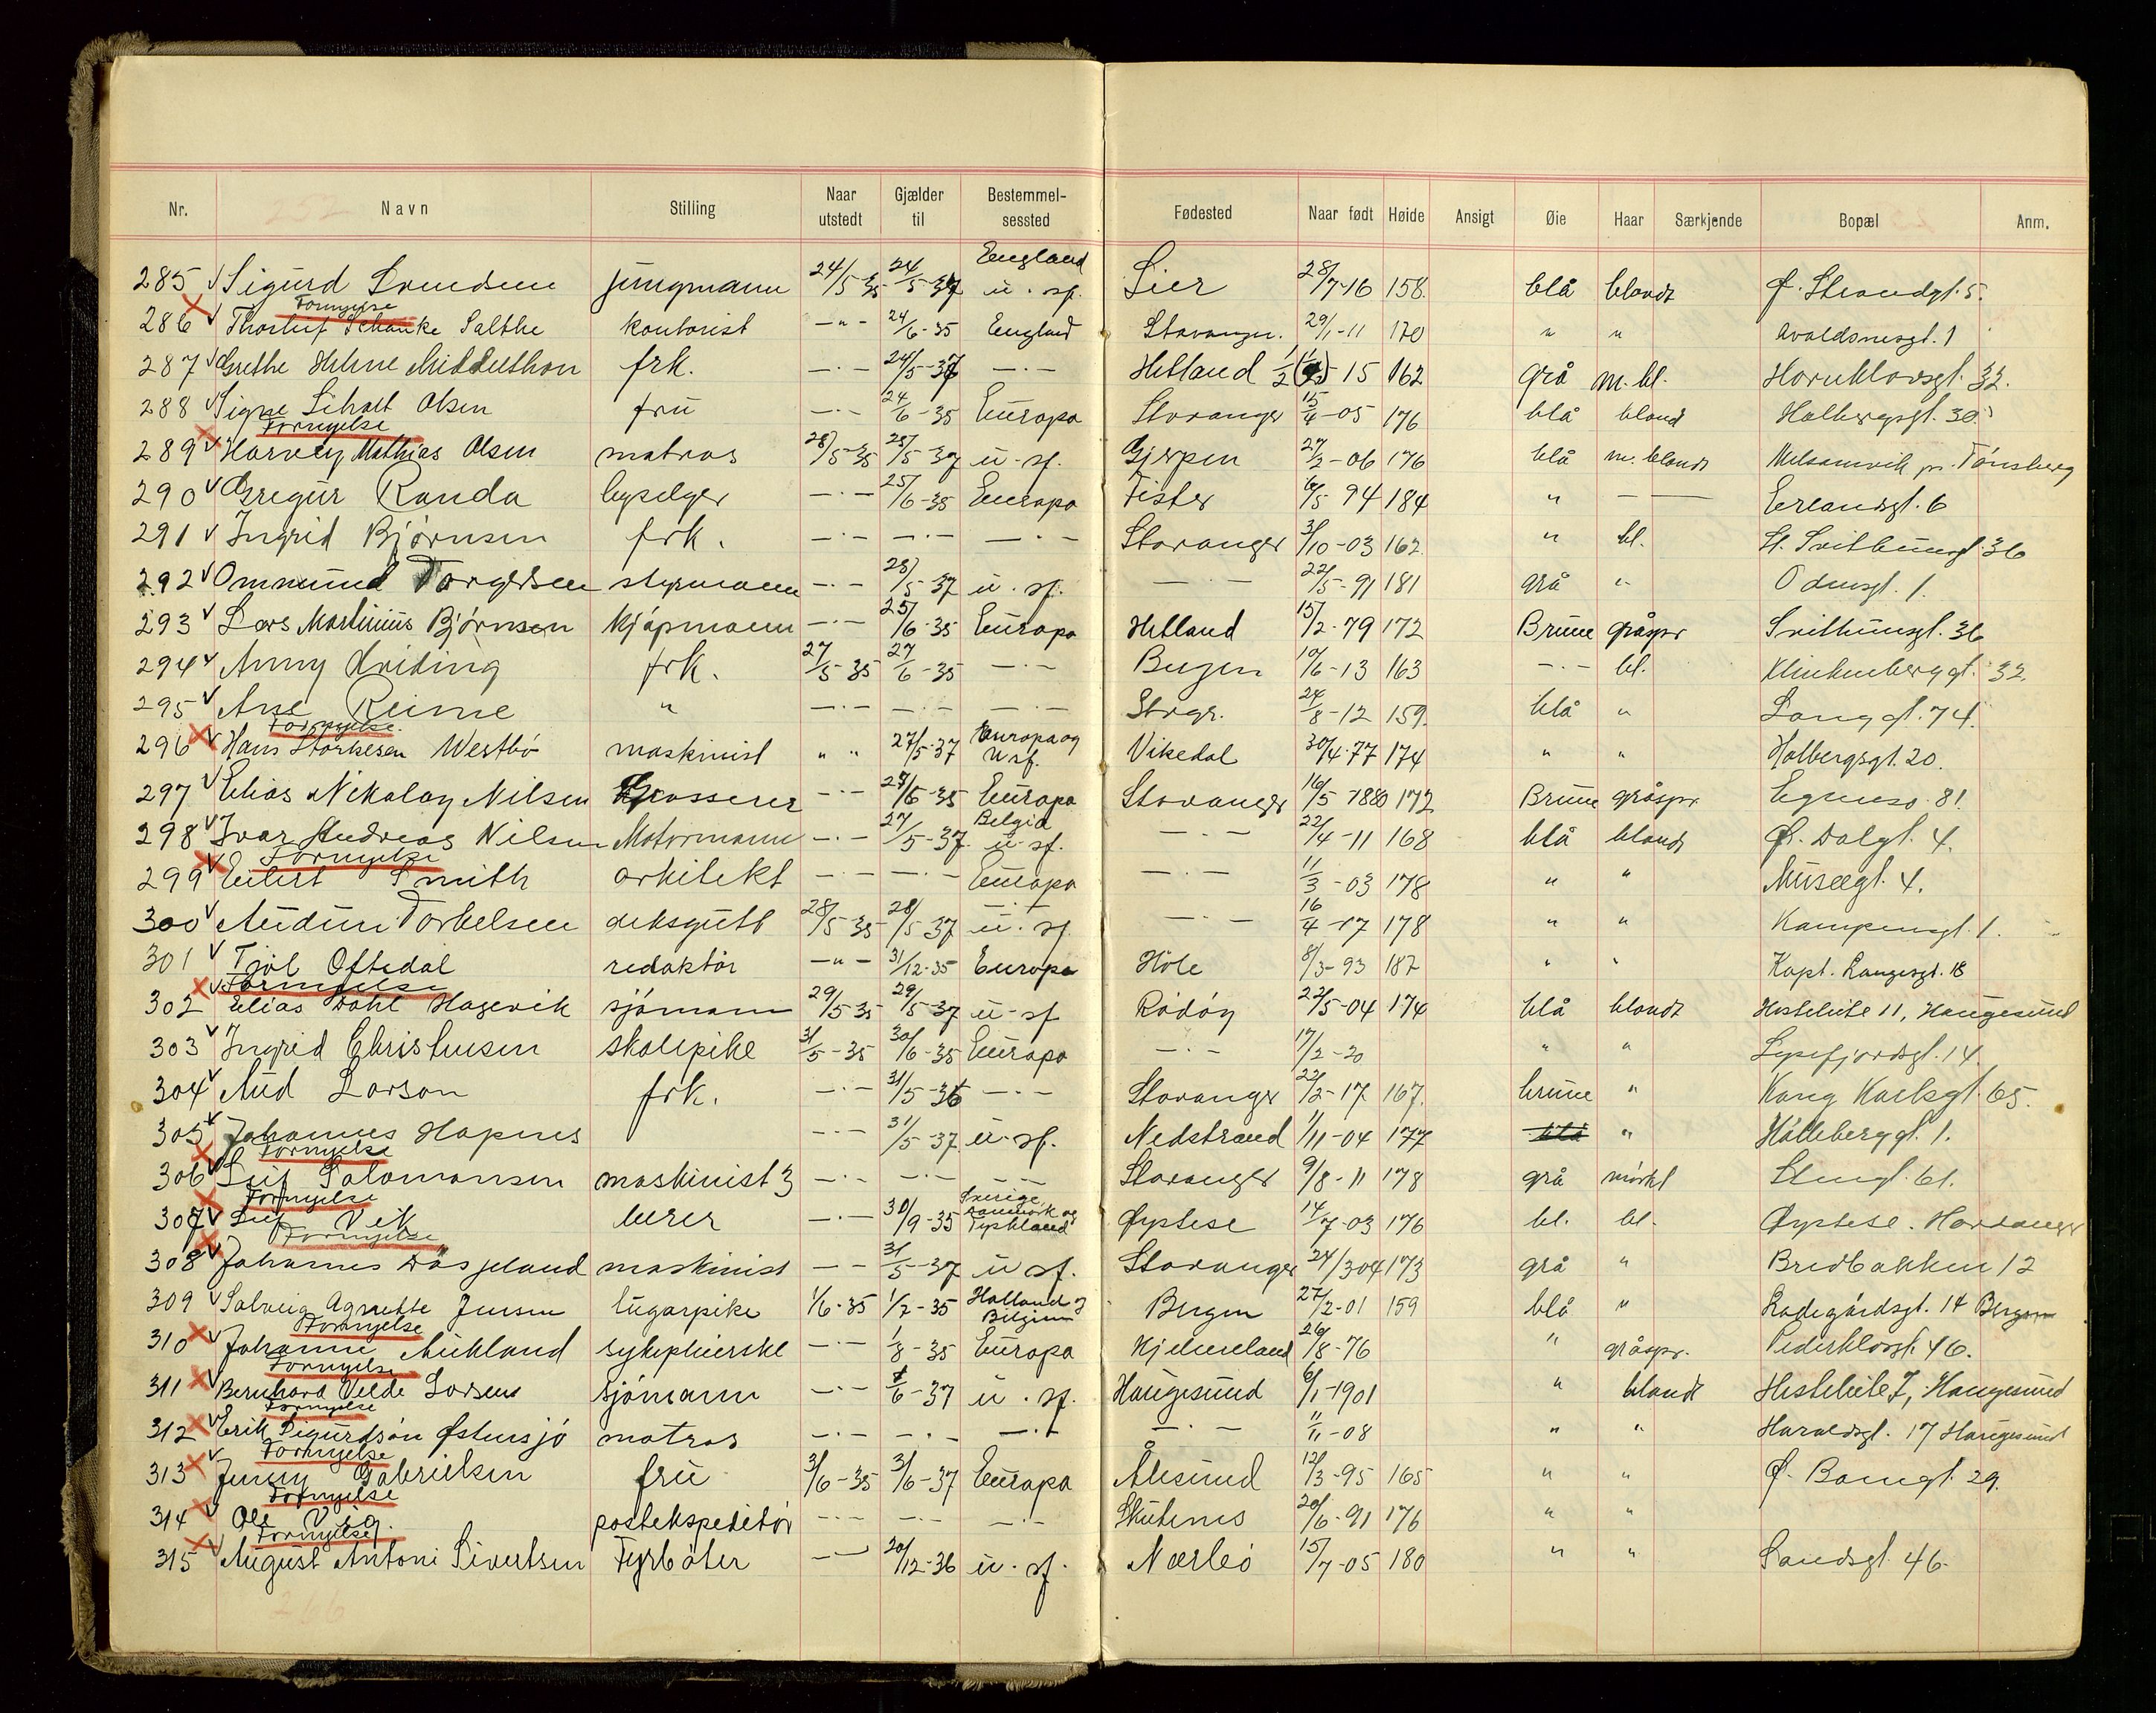 Nr. Navn Stilling Naar utstedt Gjælder til Bestemmelsessted Fødested Naar født Høide Ansigt Øie Haar Særkjende Bopæl Anm.
285 Sigurd Svendsen jungmann 24/5-35 24/5-37 England u. sf. Lier 28/7-16 158 blå blondt Ø. Strandgt. 5.
Fornyelse
286 Thorleif Schanke Salthe kontorist -"- 24/6-35 England Stavanger. 29/1-11 170 " " Avaldsnesgt. 1
287 Grethe Helene Middelthon frk. -.- 24/5-37 -.- Hetland 15 162 grå m. bl. Hornklovsgt. 32.
288 Signe Olsen fru -.- 24/6-35 Europa Stavanger 15/4-05 176 blå blond Holbergsgt. 30.
Fornyelse
289 Harvey Mathias Olsen matros 28/5-35 28/5-37 u-sf. Gjerpen 27/2-06 176 blå m. blondt Melsomvik pr. Tönsberg
290 Gregur Randa lyselger -.- 25/6-35 Europa Fister 6/5 94 184 " — — Erlandsgt. 6
291 Ingrid Bjørnsen frk. -.- -.- -.- Stavanger 31/10-03 162 " bl. St. Svithunsgt 36
292 Ommund Torgersen styrmann -.- 28/5-37 u. sf. -.- 22/5-91 181 grå " Odinsgt. 1.
293 Lars Martinius Bjørnsen kjøpmann -.- 25/6-35 Europa Hetland 15/2-79 172 Brune gråspr Svithunsgt. 36
294 Anny Kviding frk. 27/5-35 27/6-35 -.- Bergen 10/6-13 163 -.- bl. Klinkenberggt. 32
295 Ane Reime " -.- -.- -.- Stvgr. 24/8-12 159 blå " Langgt. 74.
Fornyelse.
296 Hans Storkesen Westbö maskinist " " 27/5-37 Europa og U sf. Vikedal 30/4-77 174 " " Holbergsgt. 20.
297 Elias Nikolay Nilsen Grosserer -.- 27/6-35 Europa Stavanger 16/5-1880 172 Brune gråspr. Egenesv. 81.
298 Ivar Andreas Nilsen Motormann -.- 27/5-37 Belgia u-sf. -.- 22/4-11 168 blå blondt Ø. Dalgt. 4.
Fornyelse
299 Eilert Smith arkitekt -.- -.- Europa -.- 11/3-03 178 " " Museegt. 4.
300 Audun Torkelsen deksgutt 28/5-35 28/5-37 u. sf. -.- 16/4-17 178 " " Kampengt. 1.
301 Tjöl Oftedal redaktör -"- 31/12-35 Europa Höle 8/3-93 187 " " Kapt. Langesgt. 18
Fornyelse
302 Elias Dahl Hagevik sjömann 29/5-35 29/5-37 u-sf Rödöy 22/5-04 174 blå blondt Hesteleite 11, Haugesund
303 Ingrid Christensen skolepike 31/5-35 30/6-35 Europa -.- 17/2-20 " " Lysefjordsgt. 14.
304 Aud Larson frk. -.- 31/5-36 -.- Stavanger 22/2-17 167. brune " Kong Karlsgt. 65.
305 Johannes Hapnes -.- 31/5-37. u-sf. Nedstrand 1/11-04 177 blå " Hålleberggt. 1.
Fornyelse
306 Leif Salomonsen maskinist 3 -.- -.- -- Stavanger 9/8-11 178 grå mörkt Stengt. 61.
Fornyelse
307 Leif Vik lærer -.- 30/9-35 Sverige, Danmark og Tyskland Øystese 14/7-03 176 bl. bl. Øystese. Hardanger
Fornyelse
308 Johannes maskinist -- 31/5-37 u sf. Stavanger 24/3 04 173 grå " Bredbakken 12
309 Solveig Agnethe Jensen lugarpike 1/6-35 1/7-35 Holland og Belgien Bergen 27/2-01 159 blå " Ladegårdsgt. 14 Bergen
Fornyelse
310 Johanne Aukland sykepleierske -.- 1/8-35 Europa 26/8-76 " gråspr. Pederklovsgt. 46.
Fornyelse
311 Bernhard Velde Larsen sjömann -.- 1/6-37 u. sf. Haugesund 6/1-1901 " blondt Hesteleite 7, Haugesund
Fornyelse
312 Erik Sigurdsön Østensjö matros -.- -.- -.- -.- 11/11-08 " " Haraldsgt. 17 Haugesund
Fornyelse
313 Jenny Gabrielsen fru 3/6-35 3/6-37 Europa Ålesund 12/3-95 165 " " Ø. Banegt. 29.
Fornyelse
314 Ole Vig. postekspeditör -.- -- -.- Skutenes 20/6-91 176 " "
Fornyelse
315 August Antoni Sivertsen Fyrböter -- 20/12-36 u. sf. Nærbö 15/7-05 180 " " Sandsgt. 46